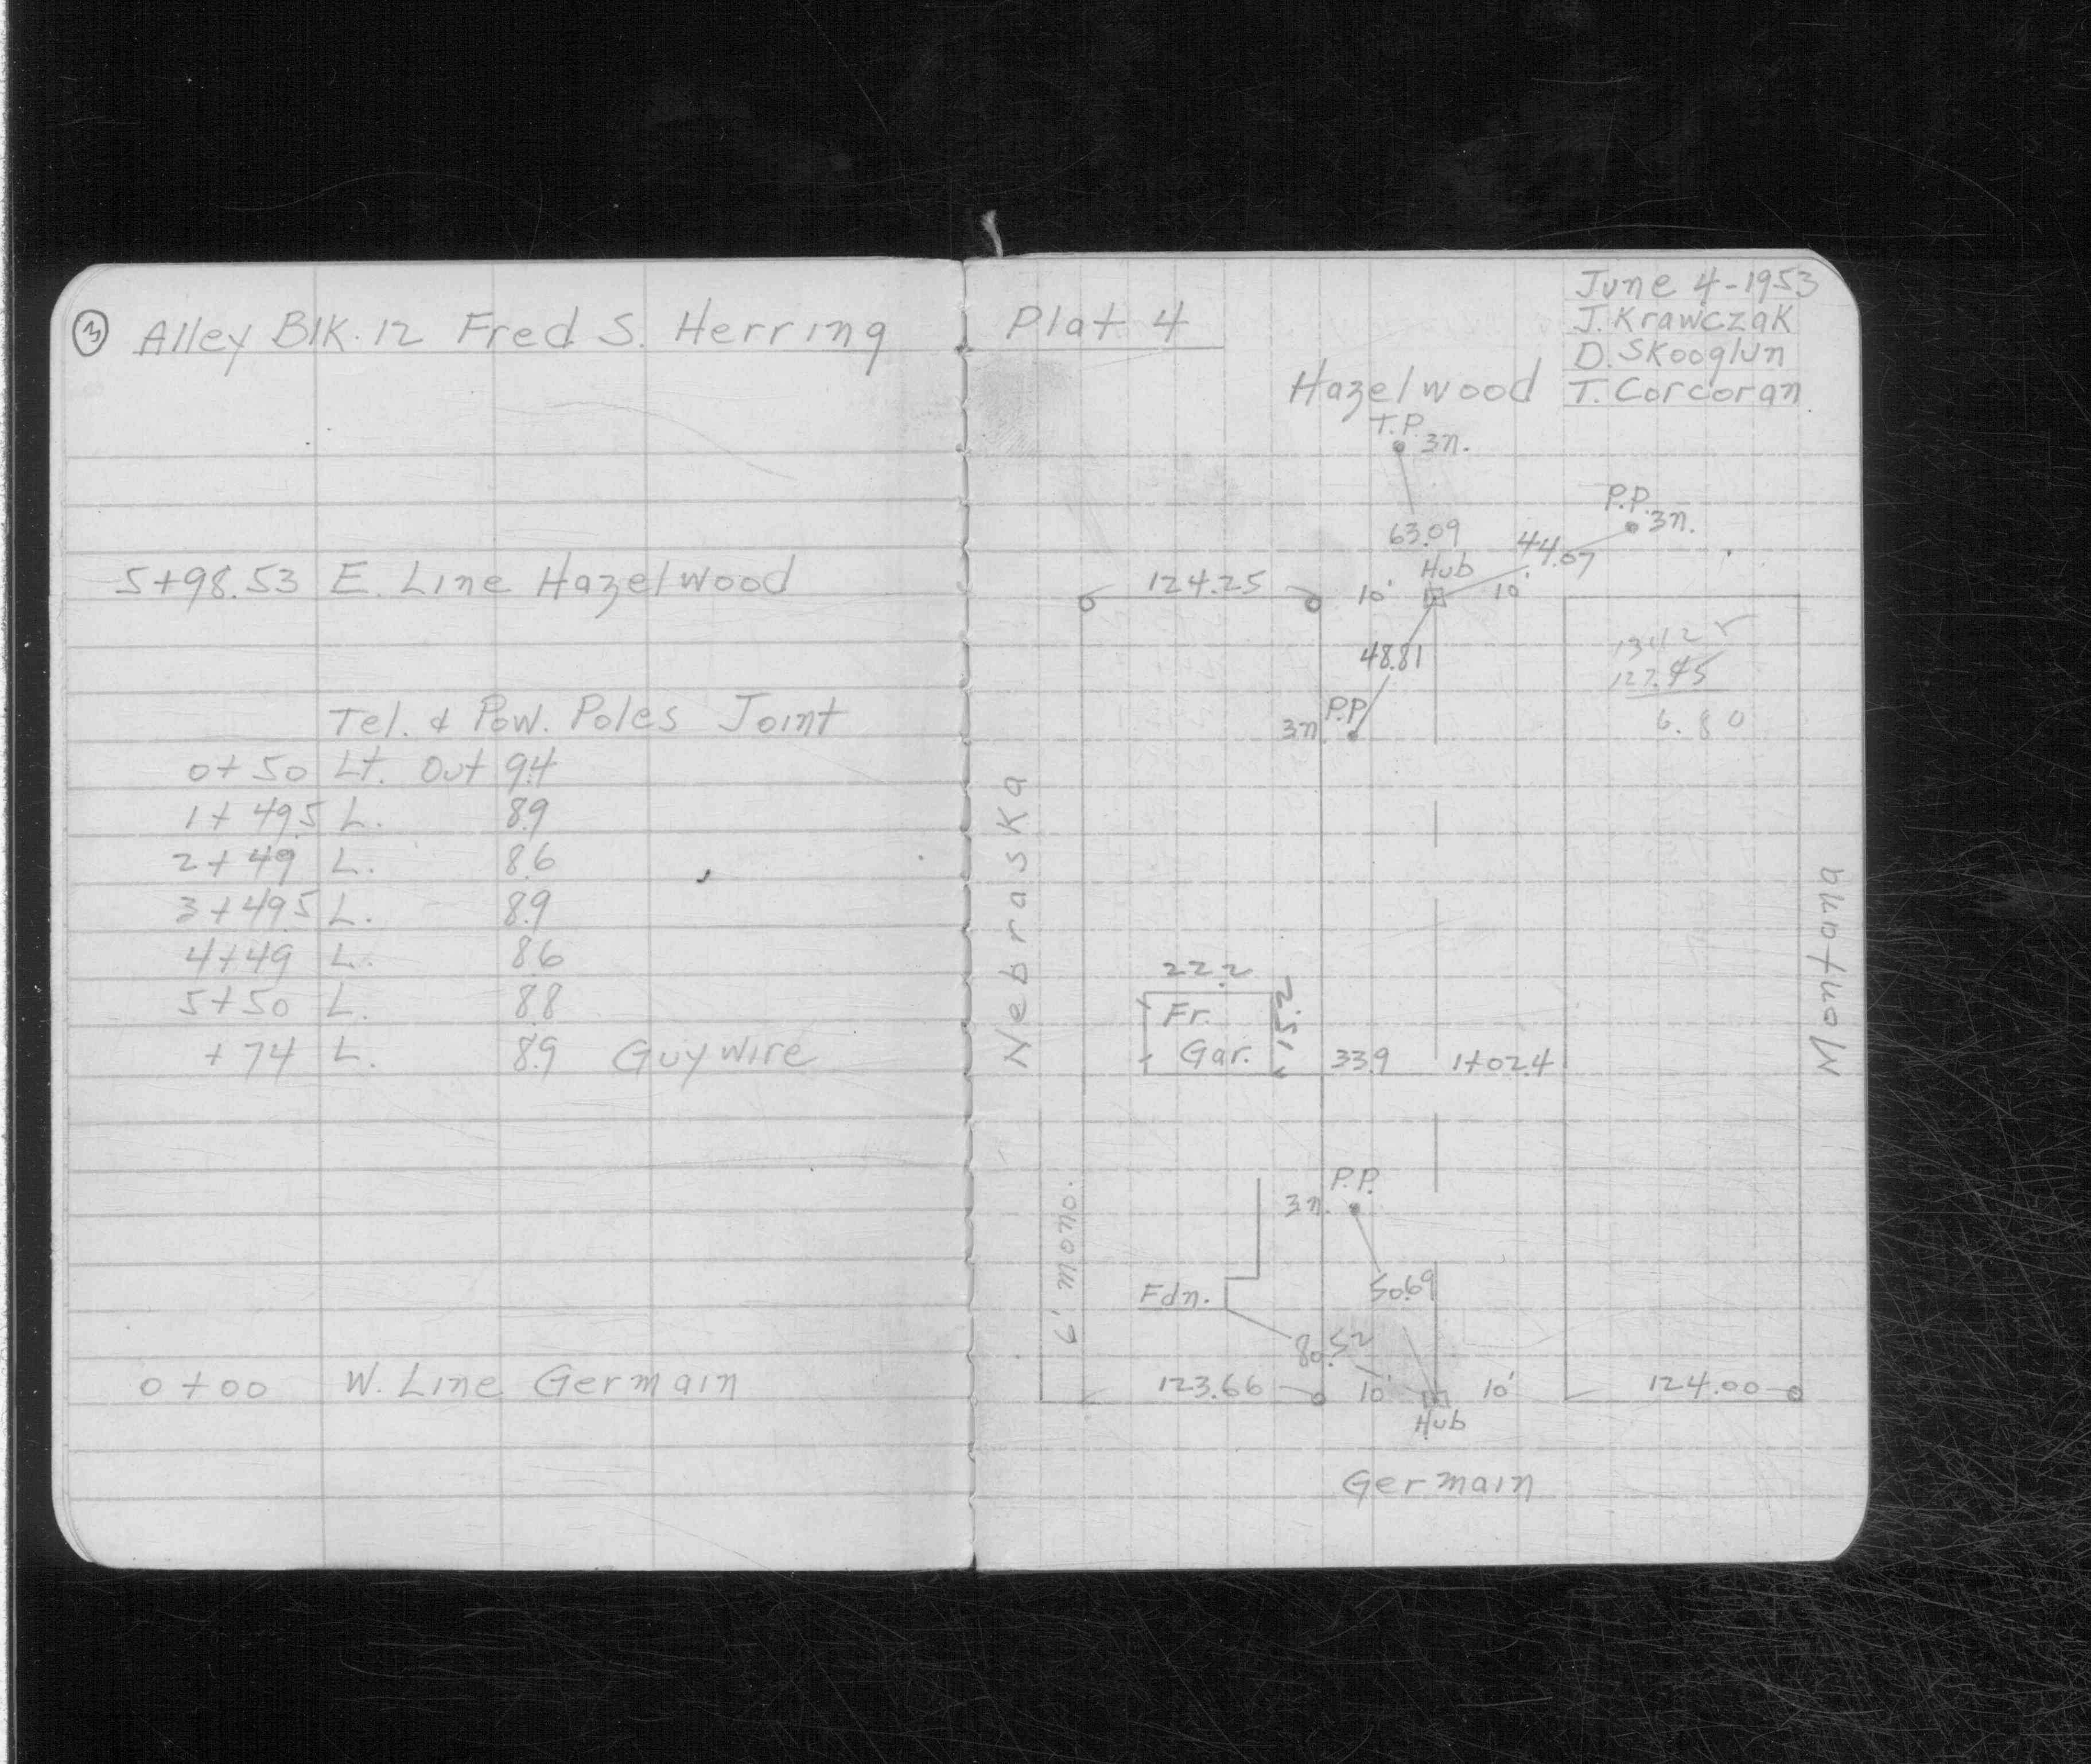 3 Alley Blk. 12 Fred S. Herring
5+98.53 E. Line Hazelwood
Tel. & Pow. Poles Joint
0+50 Lt. Out 9.4
1+49.5 L. 8.9
2+49 L. 8.6
3+49.5 L. 8.9
4+49 L. 8.6
5+50 L. 8.8
+74 L. 8.9 Guy wire
0+00 W. Line Germain
Plat 4
June 4-1953
J. Krawczak
D. Skooglun
T. Corcoran
Hazelwood
T.P. 3n.
P.P. 3n.
63.09
44.07
Hub
124.25 10' 10'
48.81
127.45
6.80
P.P.
3n.
Nebraska
Montana
22.2
Fr.
Gar.
15.2
33.9 1+02.4
P.P.
3n.
6' mono.
Fdn.
50.69
80.52
123.66 10' 10' 124.00
Hub
Germain